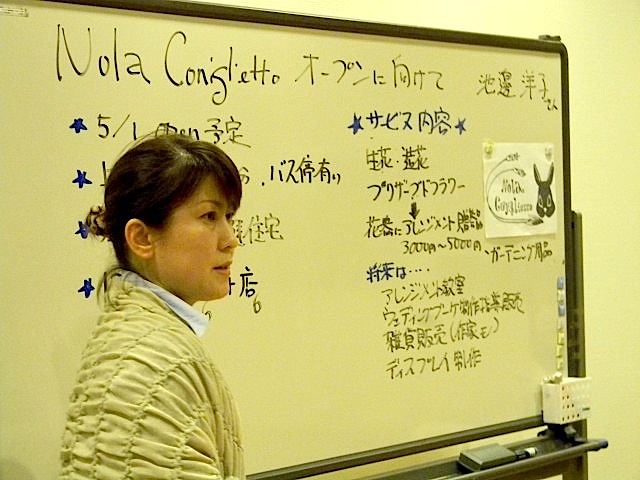 Nola Coniglietto オープンに向けて 池邊 洋子さん
★5/1 open予定
★ バス停有り
住宅
★ 店
★サービス内容★
生花・造花
プリザーブドフラワー
花器にアレンジメント贈答品
3000円～5000円
ガーデニング用品
将来は・・・・
アレンジメント教室
ウェディングブーケ制作 販売
雑貨販売(作家モノ)
ディスプレイ制作
Nola
Coniglietto